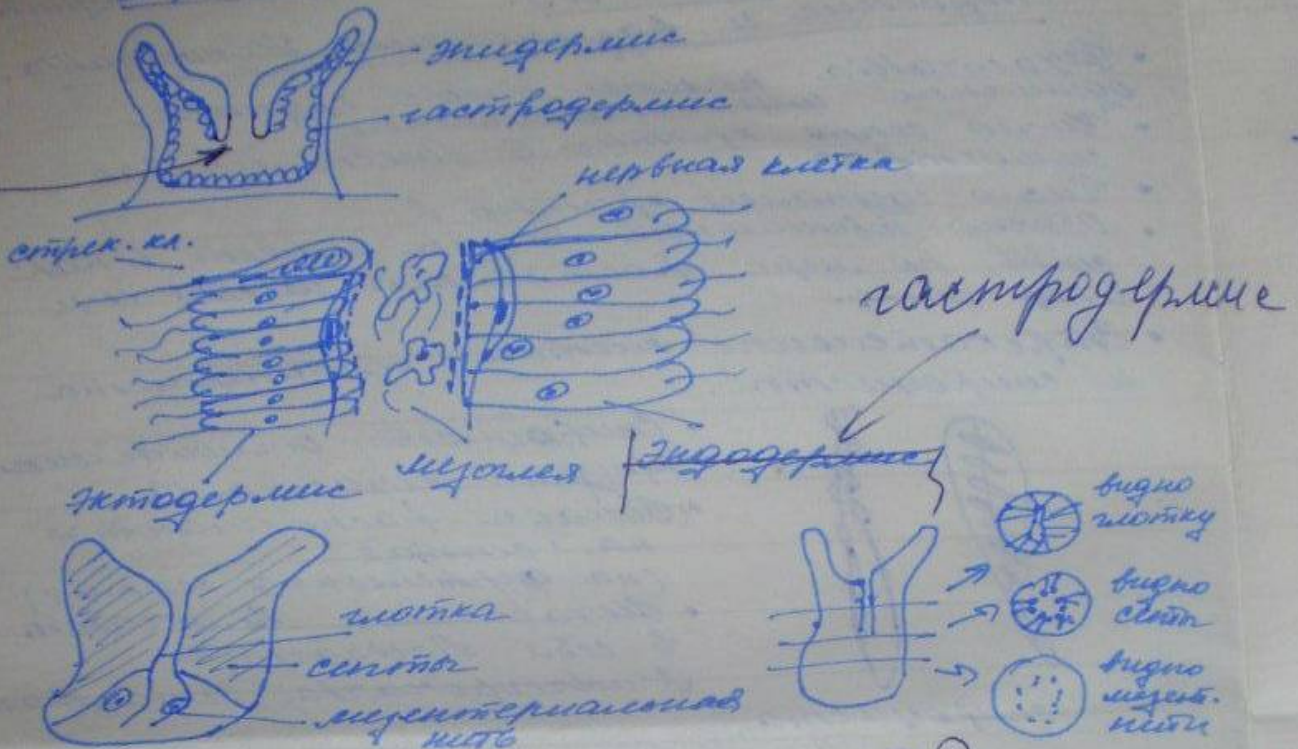 эпидермис
гастродермис
нервная клетка
стрек. кл.
гастродермис
мезоглея
эндодермис
эктодермис
видно
глотку
видно
септы
видно
мезент.
нити
глотка
септы
мезентериальная
нить